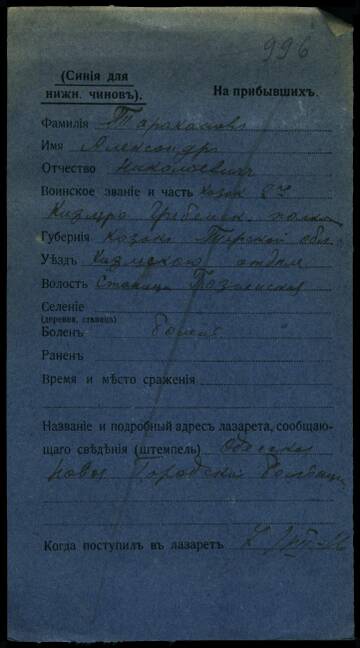 996
(Синія для
нижн. чиновъ).
На прибывшихъ.
Фамилія Таракановъ
Имя Александръ
Отчество Николаевичъ
Воинское званіе и часть Козак 2го
Кизляро Гребенск. полка
Губернія Козакъ Терской обл.
Уѣздъ отдѣл
Волость Станица
Селеніе
(деревня, станица)
Боленъ болен
Раненъ
Время и мѣсто сраженія
Названіе и подробный адресъ лазарета, сообщаю-
щаго свѣдѣнія (штемпель) Одесская
Новая Городская больница
Когда поступилъ въ лазаретъ